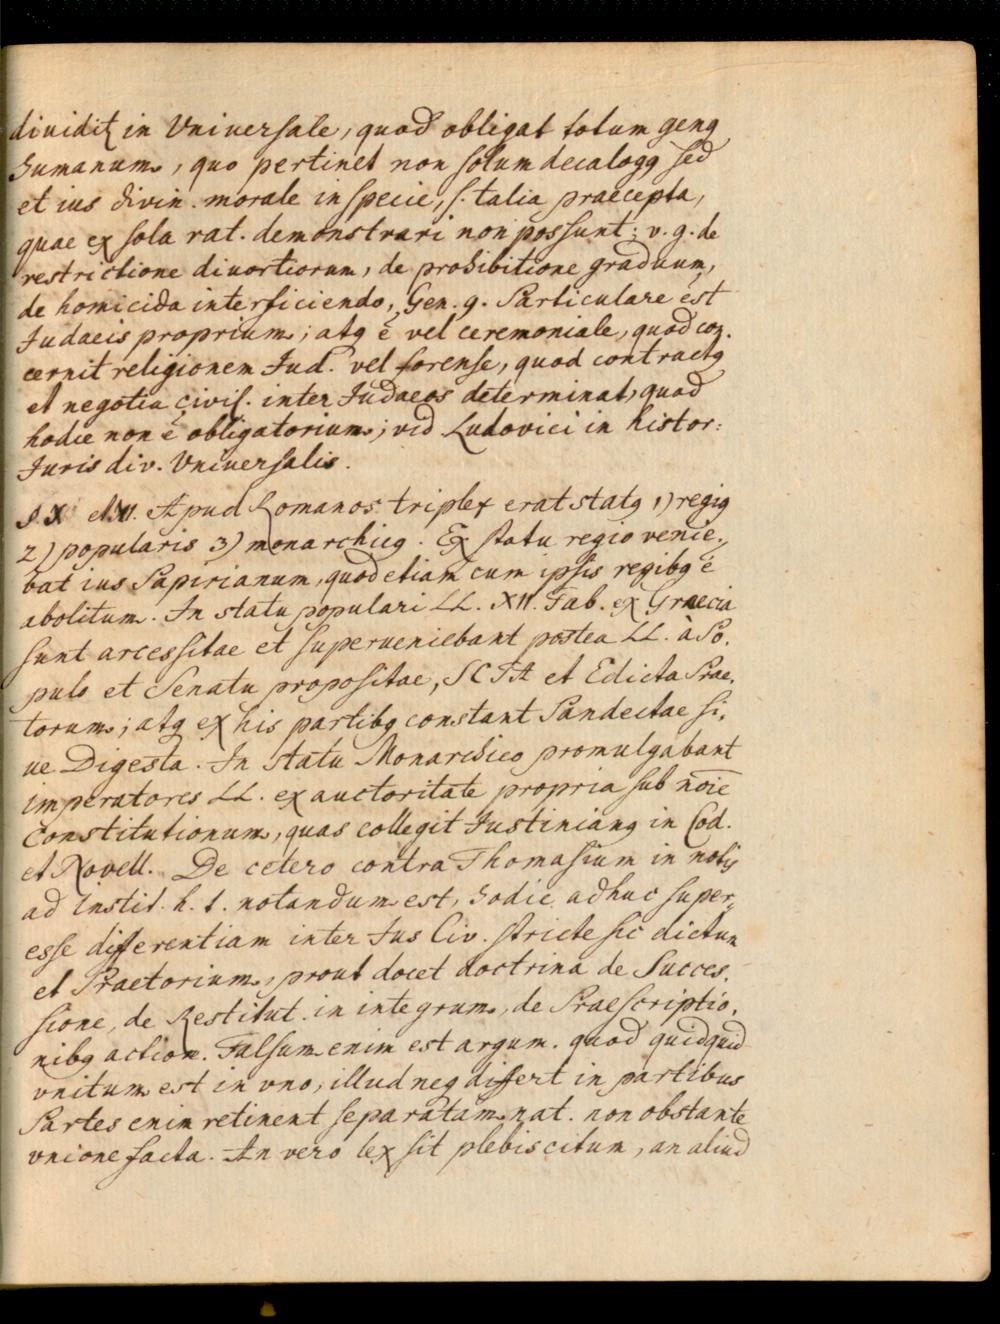 diuidit in Vniuersale, quod obligat totum geng
humanum, quo pertinet non solum decalogg sed
et ius divin. morale in specie, s. talia praecepta,
quae ex sola rat. demonstrari non possunt; v. g. de
restrictione diuortiorum, de prohibitione graduum,
de homicida interficiendo, Gen. 9. Particulare est
Judaeis proprium; atq ē vel ceremoniale, quod con-
cernit religionem Jud. vel forense, quod contractg
et negotia civil. inter Judaeos determinat, quod
hodie non ē obligatorium; vid Ludovici in histor:
Juris div. Vniuersalis.
Apud Romanos triplex erat statg 1) regig
2) popularis 3) monarchicg. Ex statu regio venie-
bat ius Papirianum, quod etiam cum ipsis regibg ē
abolitum. In statu populari LL. XII. Tab. ex Graecia
sunt arcessitae et superueniebant postea LL. à Po-
pulo et Senatu propositae, SCTA et Edicta Prae-
torum; atq ex his partibg constant Pandectae si-
ue Digesta. In statu Monarchico promulgabant
imperatores LL. ex auctoritate propria sub noīe
Constitutionum, quas collegit Justiniang in Cod.
et Novell. De cetero contra Thomasium in notis
ad Instit. h. t. notandum est, hodie adhuc super-
esse differentiam inter Jus Civ. stricte sic dictum
et Praetorium, prout docet doctrina de Succes-
sione, de Restitut. in integrum, de Praescriptio-
nibg action. Falsum enim est argum. quod quidquid
vnitum est in vno, illud neq differt in partibus
Partes enim retinent separatam nat. non obstante
vnione facta. An vero lex sit plebiscitum, an aliud